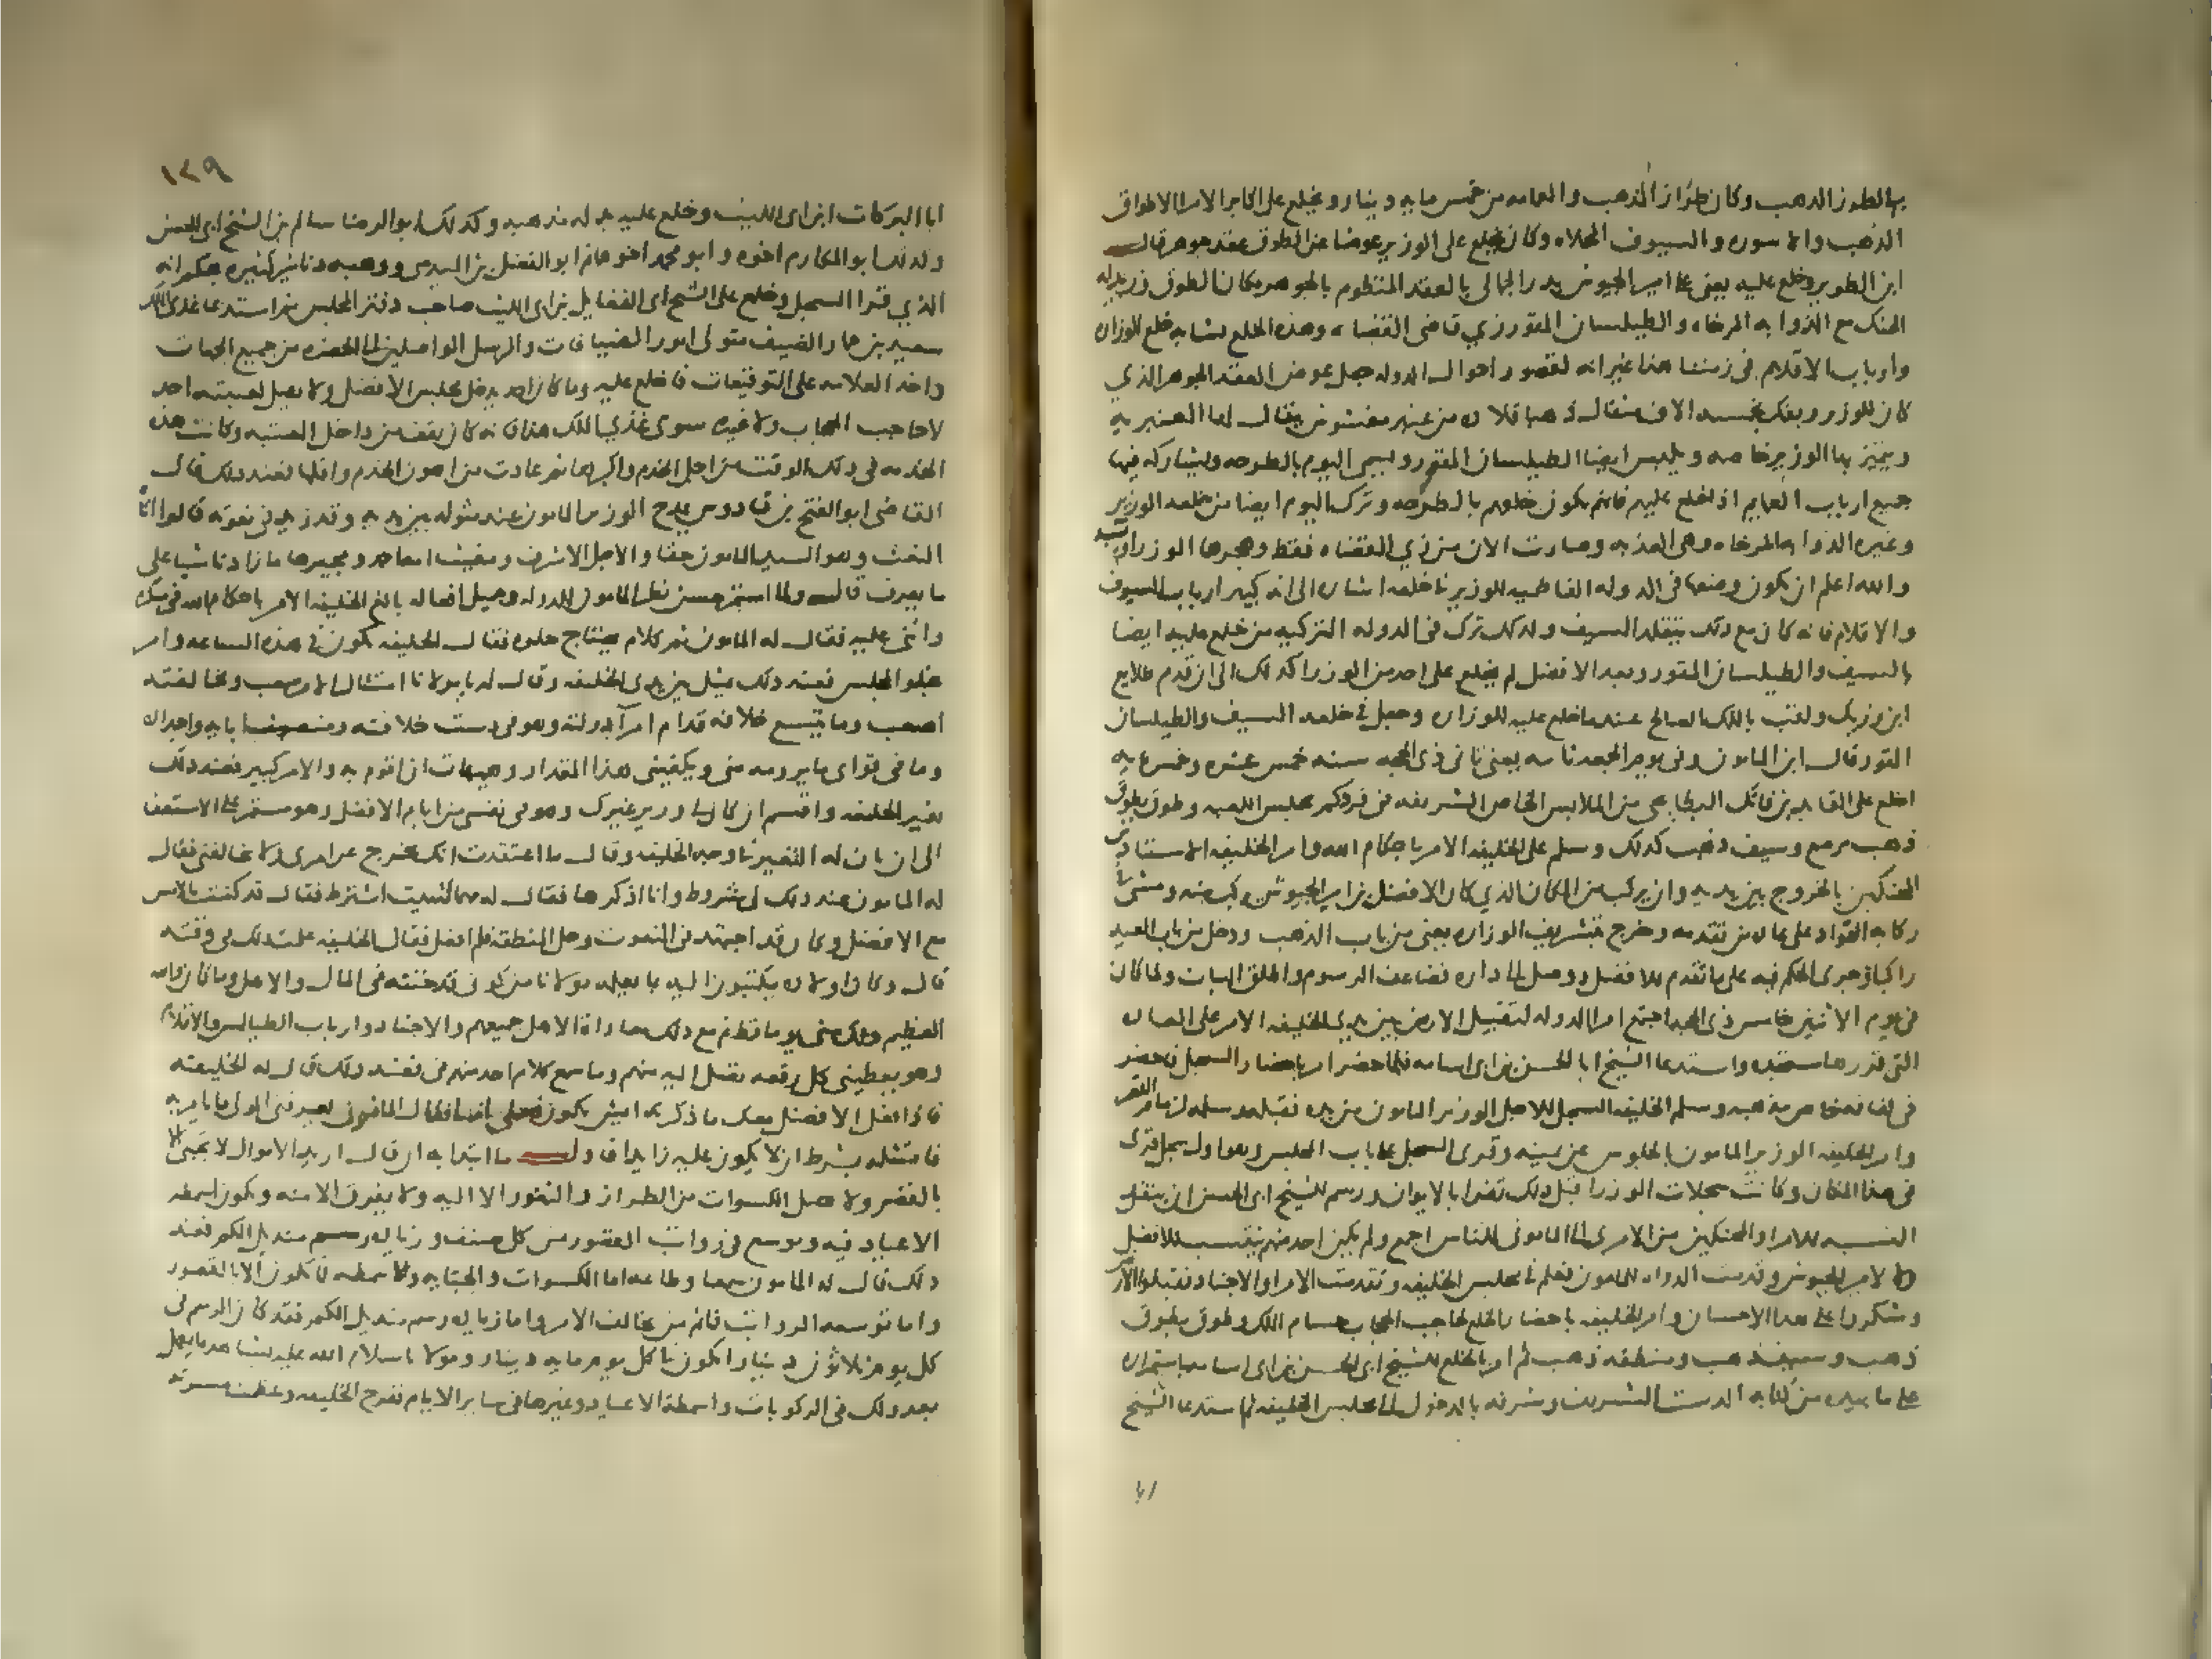 بها الطرز الدهب وكان طراز الذهب والعمامه من خمس مايه دينار ويخلع على اكابر الامرا الاطواق
الذهب والاسوره والسيوف المحلاه وكان يخلع على الوزير عوضا عن الطوق عقد جوهر قال
ابن الطوير وخلع عليه يعني على امير الجيوش بدر الجمالي بالعقد المنظوم بالجوهر مكان الطوق وزيد له
الحنك مع الذوابه المرخاه والطيلسان المقور زي قاضي القضاه وهذه الخلع تشابه خلع الوزاره
وارباب الاقلام في زمننا هذا غير انه لقصور احوال الدوله جعل عوض العقد الجوهر الذي
كان للوزير ويفك بخمسه الاف مثقال ذهبا قلاده من عنبر مغشوش يقال لها العنبريه
ويتميز بها الوزير خاصه ويلبس ايضا الطيلسان المقور ويسمى اليوم بالطرحه ويشاركه فيها
جميع ارباب العمايم اذا خلع عليهم فانهم يكون خلعهم بالطرحه وترك اليوم ايضا من خلعه الوزير
وغيره الذوابه المرخاه وهي العذبه وصارت الان من زي القضاه فقط وهجرها الوزرا
والله اعلم ان يكون وضعها في الدوله الفاطميه للوزير في خلعه اشاره الى انه كبير ارباب السيوف
والاقلام فانه كان مع ذلك يتقلد السيف وكذلك ترك في الدوله التركيه من خلع عليه ايضا
بالسيف والطيلسان المقور وبعد الافضل لم يخلع على احد من الوزرا كذلك الى ان قدم طلايع
ابن رزيك ولقب بالملك الصالح عندما خلع عليه للوزاره وجعل في خلعه السيف والطيلسان
المقور قال ابن المامون وفي يوم الجمعه ثانيه يعني ثاني ذي الحجه سنه خمس عشره وخمس مايه
اخلع على القايد بن فاتك البطايحي من الملابس الخاص الشريفه في فردكم مجلس اللعبه وطوق بطوق
ذهب مرصع وسيف ذهب كذلك وسلم على الخليفه الامر باحكام الله وامر الخليفه الاستادين
المحنكين بالخروج بين يديه وان يركب من المكان الذي كان الافضل بن امير الجيوش يركب منه ومشى في
ركابه القواد على عاده من تقدمه وخرج بتشريف الوزاره يعني من باب الذهب ودخل من باب العيد
راكبا وجرى الحكم فيه على ما تقدم للافضل ووصل الى داره فضاعف الرسوم واطلق الهبات ولما كان
في يوم الاثنين خامس ذي الحجه اجتمع امرا الدوله لتقبيل الارض بين يدي الخليفه الامر على العاده
التي قررها مستجده واستدعا الشيخ ابا الحسن بن ابي اسامه فلما حضر امر باحضار السجل فحضر
في لفافه خاص مذهبه وسلم الخليفه السجل للاجل الوزير المامون من يده فقبله وسلمه لزمام القصر
وامر الخليفه الوزير المامون بالجلوس عن يمينه وقرى السجل على باب المجلس وهو اول سجل قرى
في هذا المكان وكانت سجلات الوزرا قبل ذلك تقرا بالايوان ورسم للشيخ ابي الحسن ان ينقل
النسبه للامرا والمحنكين من الامري الى المامونى للناس اجمع ولم يكن احد منهم ينتسب للافضل
ولا لامير الجيوش وقدمت الدواه للمامون فعلم في مجلس الخليفه وتقدمت الامرا والاجناد فقبلوا الارض
وشكروا على هذا الاحسان وامر الخليفه باحضار الخلع لحاجب الحجاب حسام الملك وطوق بطوق
ذهب وسيف ذهب ومنطقه ذهب ثم امر بالخلع للشيخ ابي الحسن بن ابي اسامه باستمراره
على ما بيده من كتابه الدست الشريف وشرفه بالدخول الى مجلس الخليفه ثم استدعا الشيخ
١٢٩
ابا البركات ابن ابي الليث وخلع عليه بدله مذهبه وكذلك ابو الرضا سالم بن الشيخ ابي الحسن
وكذلك ابو المكارم اخوه وابو محمد اخوهما ثم ابو الفضل بن الميدمي ووهبه دنانير كثيره بحكم انه
الذي قرا السجل وخلع على الشيخ ابي الفضايل بن ابي الليث صاحب دفتر المجلس ثم استدعا غذي الملك
سعيد بن عمار الضيف متولي امور الضيافات والرسل الواصلين الى الحضره من جميع الجهات
واخذ العلامه على التوقيعات فاخلع عليه وما كان احد يدخل مجلس الافضل ولا يصل لعتبته احد
لا حاجب الحجاب ولا غيره سوى غذي الملك هذا فانه كان يقف من داخل العتبه وكانت هذه
الخدمه في ذلك الوقت من اجل الخدم واكبرها ثم عادت من اهون الخدم واقلها فعند ذلك قال
القاضي ابو الفتح بن قادوس يمدح الوزير المامون عند مثوله بين يديه وقد زيد في نعوته قالوا اتاه
النعت وهو السيد المامون حقا والاجل الاشرف ومغيث امة احمد ومجيرها ما زادنا شيا على
ما يعرف قال ولما استمر حسن نظر المامون للدوله وجميل افعاله بالغ الخليفه الامر باحكام الله في شكره
واثنى عليه فقال له المامون ثم كلام يحتاج خلوه فقال الخليفه يكون في هذه الساعه وامر
بخلو المجلس فعند ذلك مثل بين يدي الخليفه وقال له يا مولانا امتثال الامر صعب ومخالفته
اصعب وما يتسع خلافه قدام امرا دولته وهو في دست خلافته ومنصب ابايه واجداده
وما في قواي ما يرومه مني ويكفيني هذا المقدار وهيهات ان اقوم به والامر كبير فعند ذلك
تغير الخليفه واقسم ان كان لي وزير غيرك وهو في نفسي من ايام الافضل وهو مستمر على الاستعفا
الى ان بان له التغير في وجه الخليفه وقال ما اعتقدت انك تخرج عن امري ولا تخالفني فقال
له المامون عند ذلك لي شروط وانا اذكرها فقال له مهما شيت اشترط فقال قد كنت بالامس
مع الافضل وكان قد اجتهد في النعوت وحل المنطقه فلم افعل فقال الخليفه علمت ذلك في وقته
قال وكان اولاده يكتبون اليه بما يعلمه مولانا من كوني قد خنته في المال والاهل وما كان والله
العظيم ذلك مني يوما قط ثم مع ذلك معاداة الاهل جميعهم والاجناد وارباب الطيالس والاقلام
وهو يعطيني كل رقعه تصل اليه منهم وما سمع كلام احد منهم في فعند ذلك قال له الخليفه
فاذا كان فعل الافضل معك ما ذكرته ايش يكون فعلي انا فقال المامون يعرفني المولى ما يامر به
فامتثله بشرط ان لا يكون عليه زايدا فاول ما ابتدا به ان قال اريد الاموال لا تجبى الا
بالقصر ولا تصل الكسوات من الطراز والثغور الا اليه ولا يفرق الا منه وتكون اسمطه
الاعياد فيه ويوسع في رواتب القصور من كل صنف وزياده رسم منديل الكم فعند
ذلك قال له المامون سمعا وطاعه اما الكسوات والجبايه والاسمطه فما تكون الا بالقصور
واما توسعه الرواتب فما ثم من يخالف الامر واما زياده رسم منديل الكم فقد كان الرسم في
كل يوم ثلاثون دينارا يكون في كل يوم مايه دينار ومولانا سلام الله عليه يشاهد ما يعمل
بعد ذلك في الركوبات واسمطة الاعياد وغيرها في ساير الايام ففرح الخليفه وعظمت مسرته